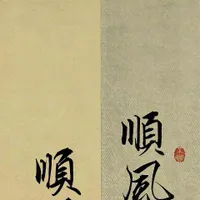 順風
順